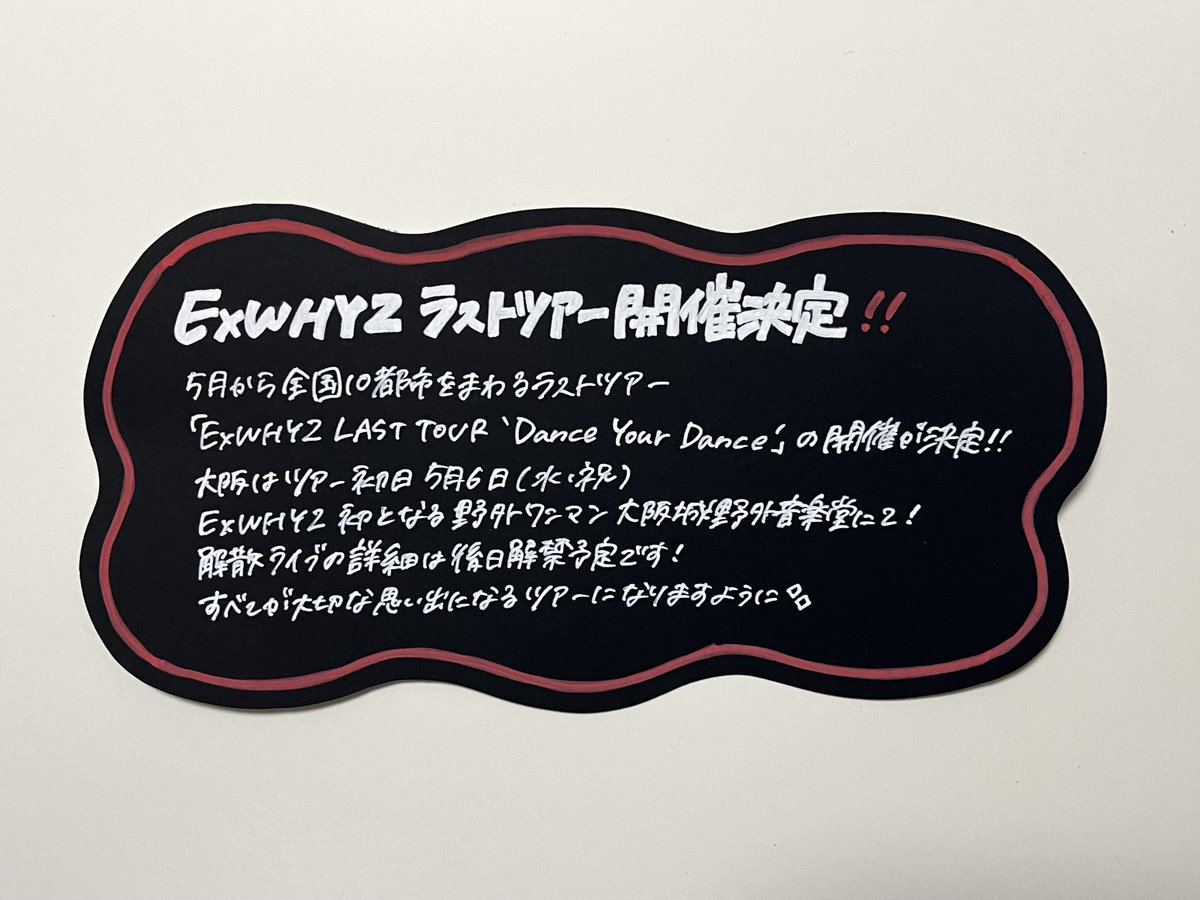 ExWHYZ ラストツアー開催決定!!
5月から全国10都市をまわるラストツアー
「ExWHYZ LAST TOUR 'Dance Your Dance'」の開催が決定!!
大阪はツアー初日 5月6日(水・祝)
ExWHYZ 初となる野外ワンマン 大阪城野外音楽堂にて!
解散ライブの詳細は後日解禁予定です!
すべてが大切な思い出になるツアーになりますように